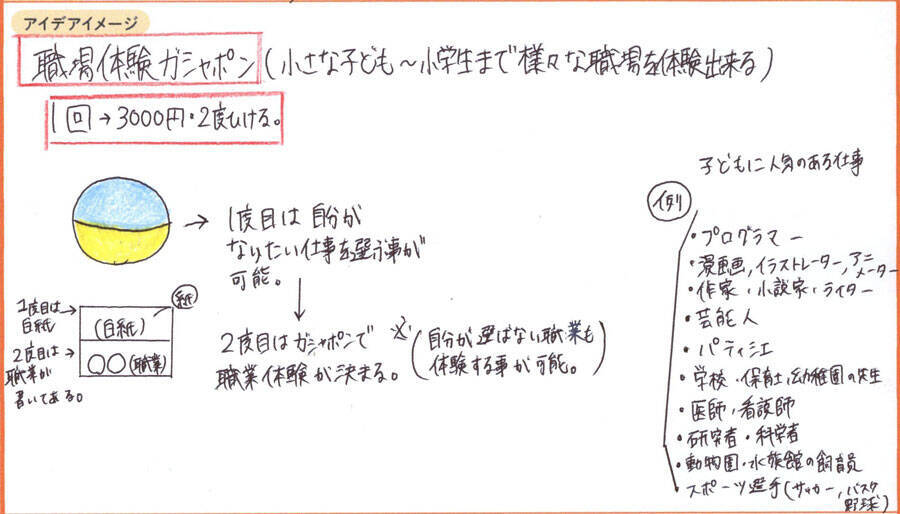 アイデアイメージ
職場体験ガシャポン(小さな子ども～小学生まで様々な職場を体験出来る)
1回→3000円・2度ひける。
→ 1度目は自分が
なりたい仕事を選ぶ事が
可能。
↓
2度目はガシャポンで
職業体験が決まる。
※(自分が選ばない職業も
体験する事が可能。)
紙
1度目は
白紙→
(白紙)
2度目は→
職業が
書いてある。
○○(職業)
子どもに人気のある仕事
例
・プログラマー
・漫画画,イラストレーター,アニメーター
・作家・小説家・ライター
・芸能人
・パティシエ
・学校・保育士,幼稚園の先生
・医師,看護師
・研究者・科学者
・動物園・水族館の飼育員
・スポーツ選手(サッカー,バスケ
野球)